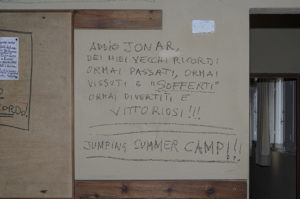 ADDIO JONAR,
DEI MIEI VECCHI RICORDI
ORMAI PASSATI, ORMAI
VISSUTI E "SOFFERTI"
ORMAI DIVERTITI E
VITTORIOSI!!!
JUMPING SUMMER CAMP!!!